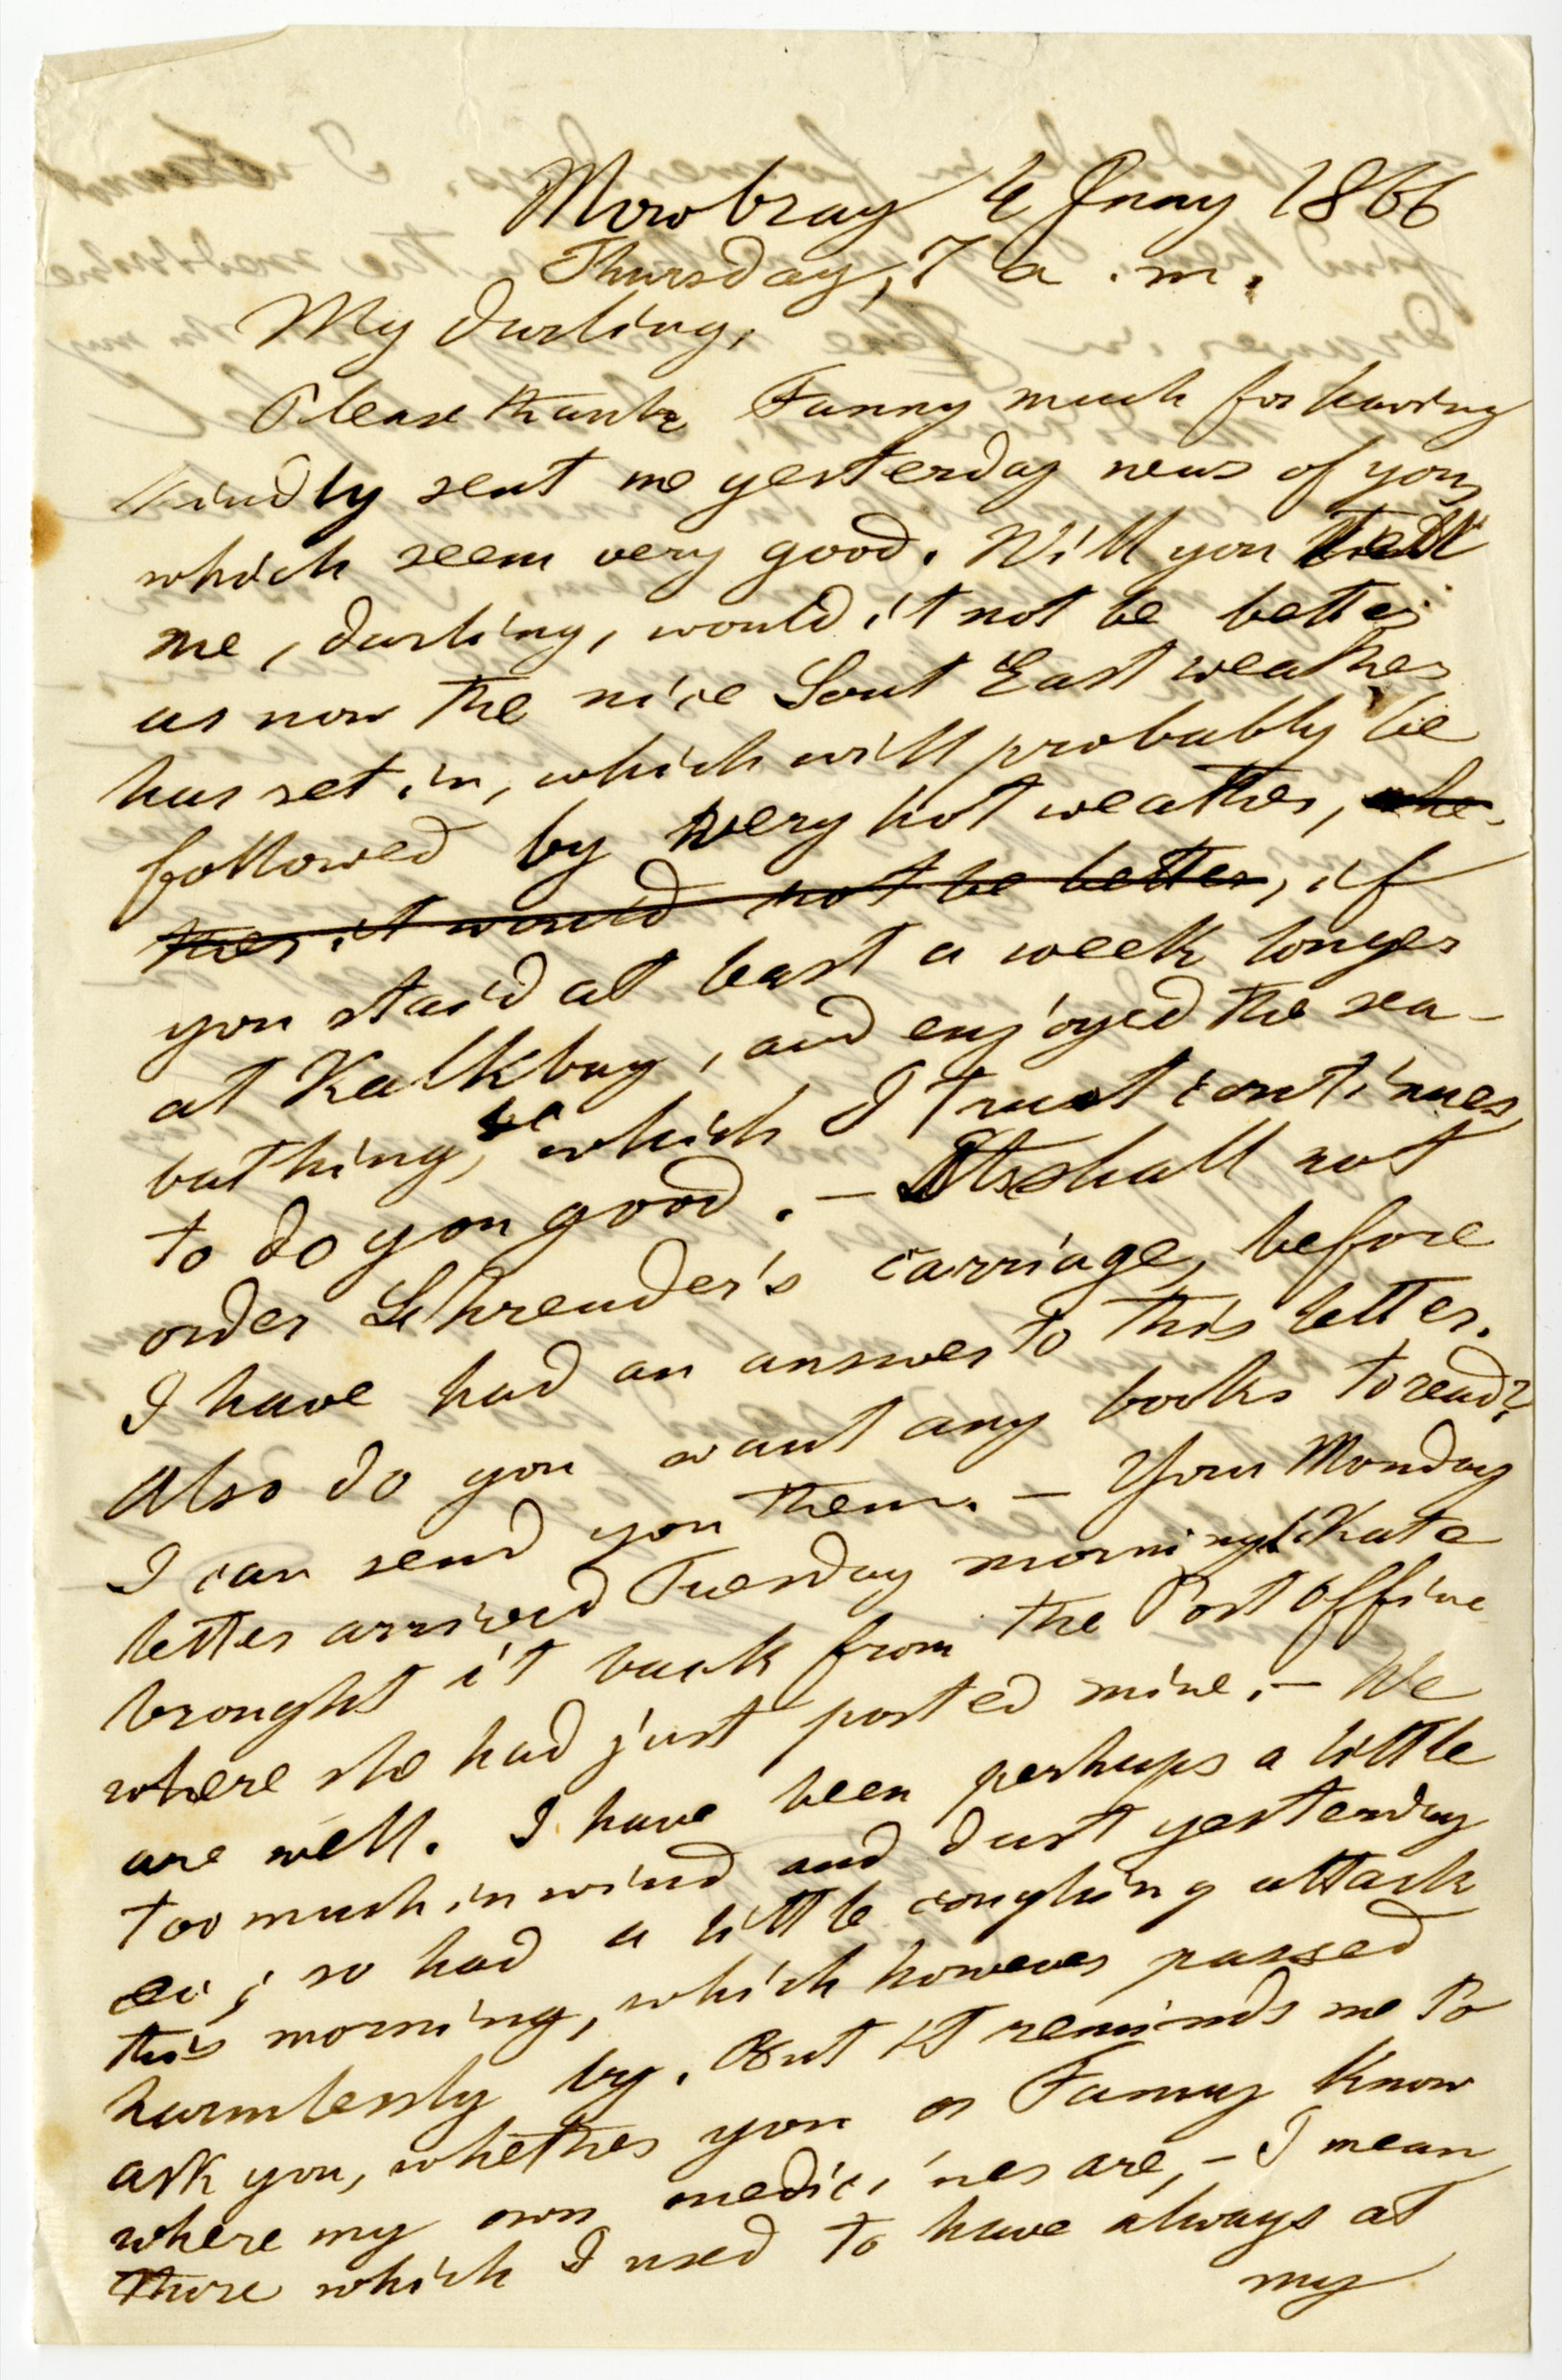 Mowbray 4 Jnny 1866
Thursday, 7 a.m.
My darling,
Please thank Fanny much for having
kindly sent me yesterday news of you,
which seem very good. Will you tell
me, darling, would it not be better
as now the nice Sout East weather
has set in, which will probably be
followed by very hot weather, whe-
ther it would not be better, if
you staid at least a week longer
at Kalkbay, and enjoyed the sea-
bathing, which I trust continues
to do you good. – I shall not
order Schreuder's carriage, before
I have had an answer to this letter.
Also do you want any books to read?
I can send you them. – Your Monday
letter arrived Tuesday morning. Kate
brought it back from the Post Office
where she had just posted mine. – We
are well. I have been perhaps a little
too much in wind and dust yesterday
so had a little coughing attack
this morning, which however passed
harmlessly by. But it reminds me to
ask you, whether you or Fanny know
where my own medicines are, – I mean
those which I used to have always at
my